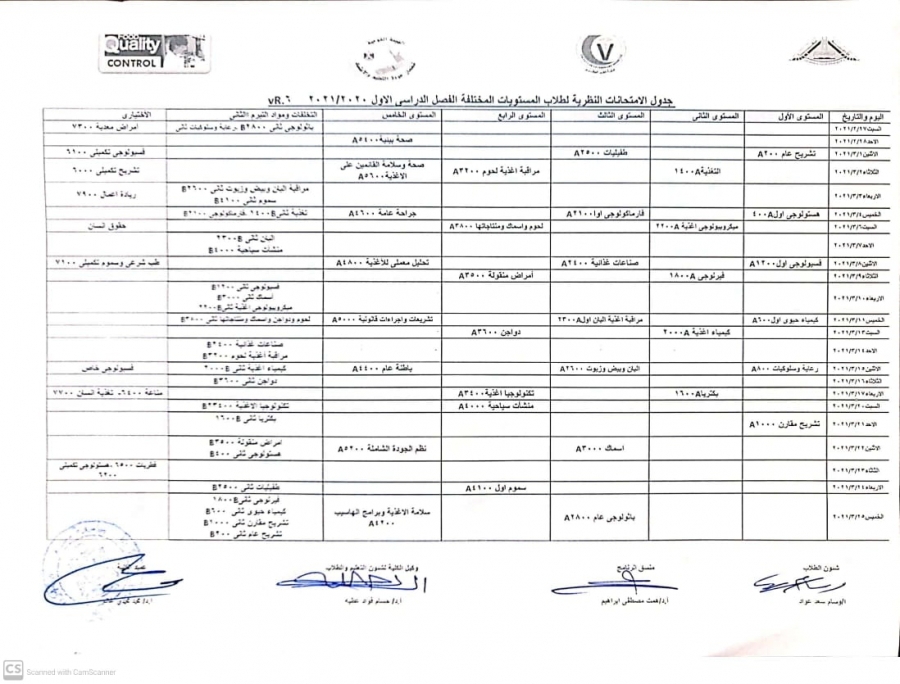 FOOD
Quality
CONTROL
V
جدول الامتحانات النظرية لطلاب المستويات المختلفة الفصل الدراسى الاول ٢٠٢١/٢٠٢٠ vR.٦
اليوم والتاريخ المستوى الأول المستوى الثانى المستوى الثالث المستوى الرابع المستوى الخامس التخلفات ومواد التيرم الثانى الاختيارى
السبت٢٠٢١/٢/٢٧ باثولوجى ثانى B٢٨٠٠ -رعاية وسلوكيات ثانى أمراض معدية ٧٣٠٠
الاحد٢٠٢١/٢/٢٨ صحة بيئية A٥٤٠٠
الاثنين٢٠٢١/٣/١ تشريح عام A٢٠٠ طفيليات A٢٥٠٠ فسيولوجى تكميلى ٦١٠٠
الثلاثاء٢٠٢١/٣/٢ التغذية A١٤٠٠ مراقبة اغذية لحوم A٣٢٠٠ صحة وسلامة القائمين على
الاغذية A٥٦٠٠ تشريح تكميلى ٦٠٠٠
الاربعاء٢٠٢١/٣/٣ مراقبة البان وبيض وزيوت ثانى B٢٦٠٠
سموم ثانى B٤١٠٠ ريادة اعمال ٧٩٠٠
الخميس٢٠٢١/٣/٤ هستولوجى اول A٤٠٠ فارماكولوجى اوا A٢١٠٠ جراحة عامة A٤٦٠٠ تغذية ثانى B١٤٠٠ -فارماكولوجى B٢١٠٠
السبت٢٠٢١/٣/٦ ميكروبيولوجى اغذية A٢٢٠٠ لحوم واسماك ومنتجاتها A٣٨٠٠ حقوق انسان
الاحد٢٠٢١/٣/٧ البان ثانى B٢٣٠٠
منشأت سياحية B٤٠٠٠
الاثنين٢٠٢١/٣/٨ فسيولوجى اول A١٢٠٠ صناعات غذائية A٢٤٠٠ تحليل معملى للأغذية A٤٨٠٠ طب شرعى وسموم تكميلى ٧٢٠٠
الثلاثاء٢٠٢١/٣/٩ فيرلوجى A١٨٠٠ أمراض منقولة A٣٥٠٠
الاربعاء٢٠٢١/٣/١٠ فسيولوجى ثانى B١٢٠٠
اسماك ثانى B٣٠٠٠
ميكروبيولوجى اغذية ثانى B٢٢٠٠
الخميس٢٠٢١/٣/١١ كيمياء حيوى اول A٦٠٠ مراقبة اغذية البان اول A٢٣٠٠ تشريعات واجراءات قانونية A٥٠٠٠ لحوم ودواجن واسماك ومنتجاتها ثانى B٣٨٠٠
السبت٢٠٢١/٣/١٣ كيمياء اغذية A٢٠٠٠ دواجن A٣٦٠٠
الاحد٢٠٢١/٣/١٤ صناعات غذائية B٢٤٠٠
مراقبة اغذية لحوم B٣٢٠٠
الاثنين٢٠٢١/٣/١٥ رعاية وسلوكيات A٨٠٠ البان وبيض وزيوت A٢٦٠٠ باطنة عام A٤٤٠٠ كيمياء اغذية ثانى B٢٠٠٠ فسيولوجى خاص
الثلاثاء٢٠٢١/٣/١٦ دواجن ثانى B٣٦٠٠
الاربعاء٢٠٢١/٣/١٧ بكتريا A١٦٠٠ تكنولوجيا اغذية A٣٤٠٠ مناعة ٦٤٠٠- تغذية انسان ٧٧٠٠
السبت٢٠٢١/٣/٢٠ منشأت سياحية A٤٠٠٠ تكنولوجيا الاغذية B٣٤٠٠
الاحد٢٠٢١/٣/٢١ تشريح مقارن A١٠٠٠ بكتريا ثانى B١٦٠٠
الاثنين٢٠٢١/٣/٢٢ اسماك A٣٠٠٠ نظم الجودة الشاملة A٥٢٠٠ امراض منقولة B٣٥٠٠
هستولوجى ثانى B٤٠٠
الثلاثاء٢٠٢١/٣/٢٣ فطريات ٦٥٠٠ -هستولوجى تكميلى
٦٢٠٠
الاربعاء٢٠٢١/٣/٢٤ سموم اول A٤١٠٠ طفيليات ثانى B٢٥٠٠
الخميس٢٠٢١/٣/٢٥ باثولوجى عام A٢٨٠٠ سلامة الاغذية وبرامج الهاسيب
A٤٢٠٠ فيرلوجى ثانى B١٨٠٠
كيمياء حيوى ثانى B٦٠٠
تشريح مقارن ثانى B١٠٠٠
تشريح عام ثانى B٢٠٠
شئون الطلاب منسق البرنامج وكيل الكلية لشئون التعليم والطلاب عميد الكلية
ا/وسام سعد عواد أ.د/همت مصطفى ابراهيم أ.د/ حسام فؤاد عطيه أ.د/ محمد
CS Scanned with CamScanner